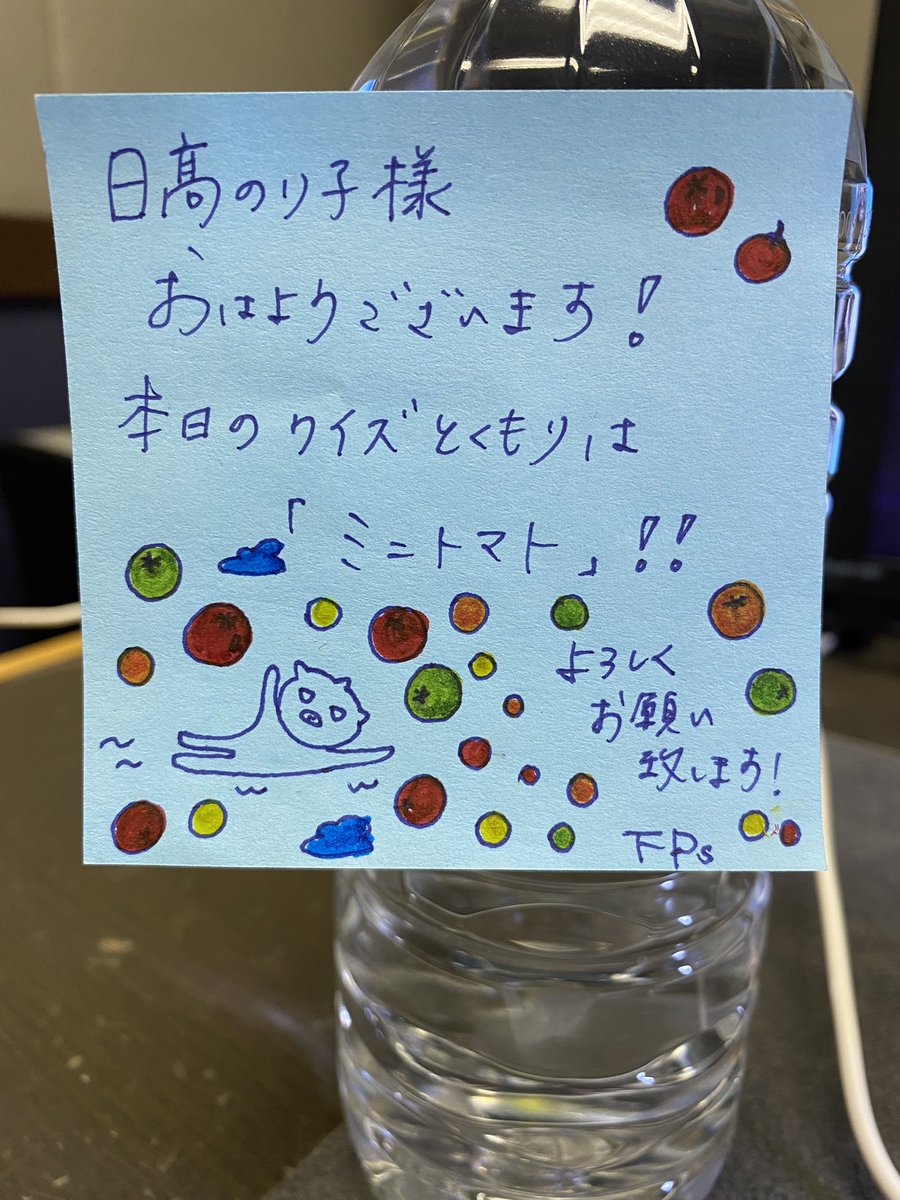 日髙のり子様
おはようございます!
本日のクイズとくもりは
「ミニトマト」!!
よろしく
お願い
致します!
FPs